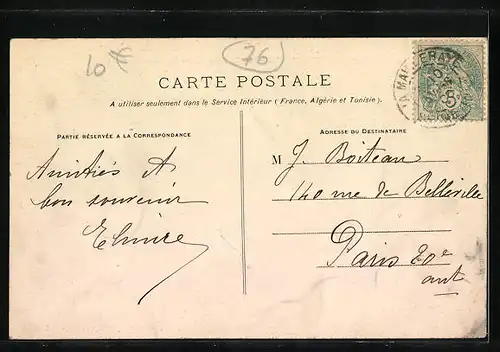 10
76
CARTE POSTALE
A utiliser seulement dans le Service Intérieur (France, Algérie et Tunisie).
PARTIE RÉSERVÉE A LA CORRESPONDANCE
ADRESSE DU DESTINATAIRE
Amitiés &
bon souvenir
M J. Boiteau
140 rue de Belleville
Paris 20e
arrt